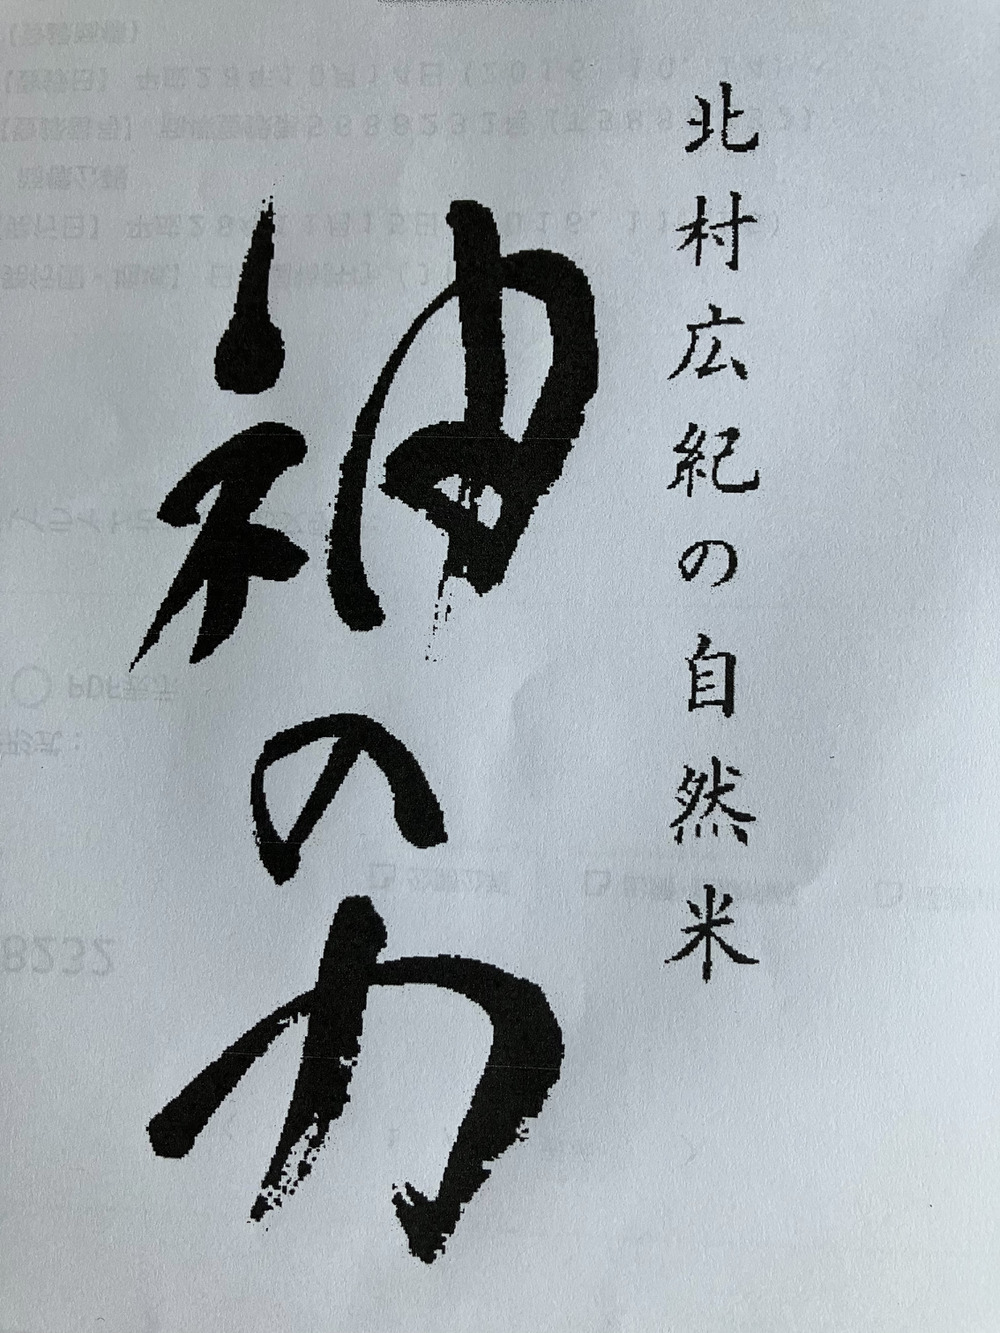 北村広紀の自然米
神の力